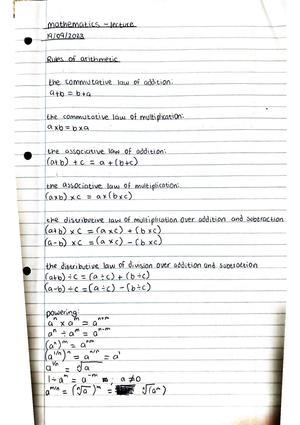 mathematics - lecture
19/09/2023
Rules of arithmetic
the commutative law of addition:
a+b = b+a
the commutative law of multiplication:
a×b = b×a
the associative law of addition:
(a+b) + c = a + (b+c)
the associative law of multiplication:
(a×b) × c = a×(b×c)
the distributive law of multiplication over addition and subtraction
(a+b) × c = (a×c) + (b×c)
(a-b) × c = (a×c) - (b×c)
the distributive law of division over addition and subtraction
(a+b) ÷ c = (a÷c) + (b÷c)
(a-b) ÷ c = (a÷c) - (b÷c)
powering:
aⁿ × aᵐ = aⁿ⁺ᵐ
aⁿ ÷ aᵐ = aⁿ⁻ᵐ
(aⁿ)ᵐ = aⁿᵐ
(a¹/ⁿ)ⁿ = aⁿ/ⁿ = a¹
a¹/ⁿ = ⁿ√a
1÷aᵐ = a⁻ᵐ ; a≠0
aᵐ/ⁿ = (ⁿ√a)ᵐ = ⁿ√(aᵐ